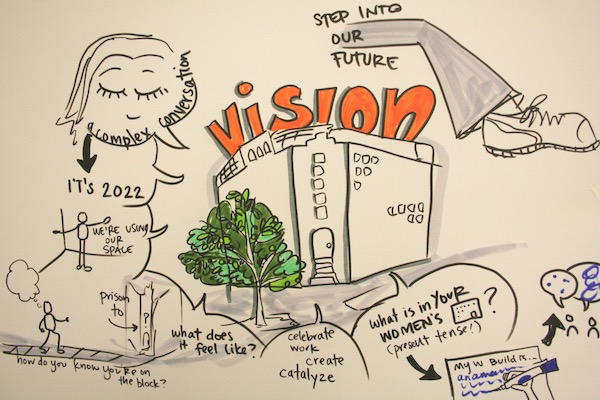 STEP INTO
OUR
FUTURE
vision
a complex conversation
IT'S 2022
WE'RE USING
OUR
SPACE
prison
to
?
how do you know you're on
the block?
what does
it feel like?
celebrate
work
create
catalyze
what is in YOUR
WOMEN'S ?
(present tense!)
My W Build is...